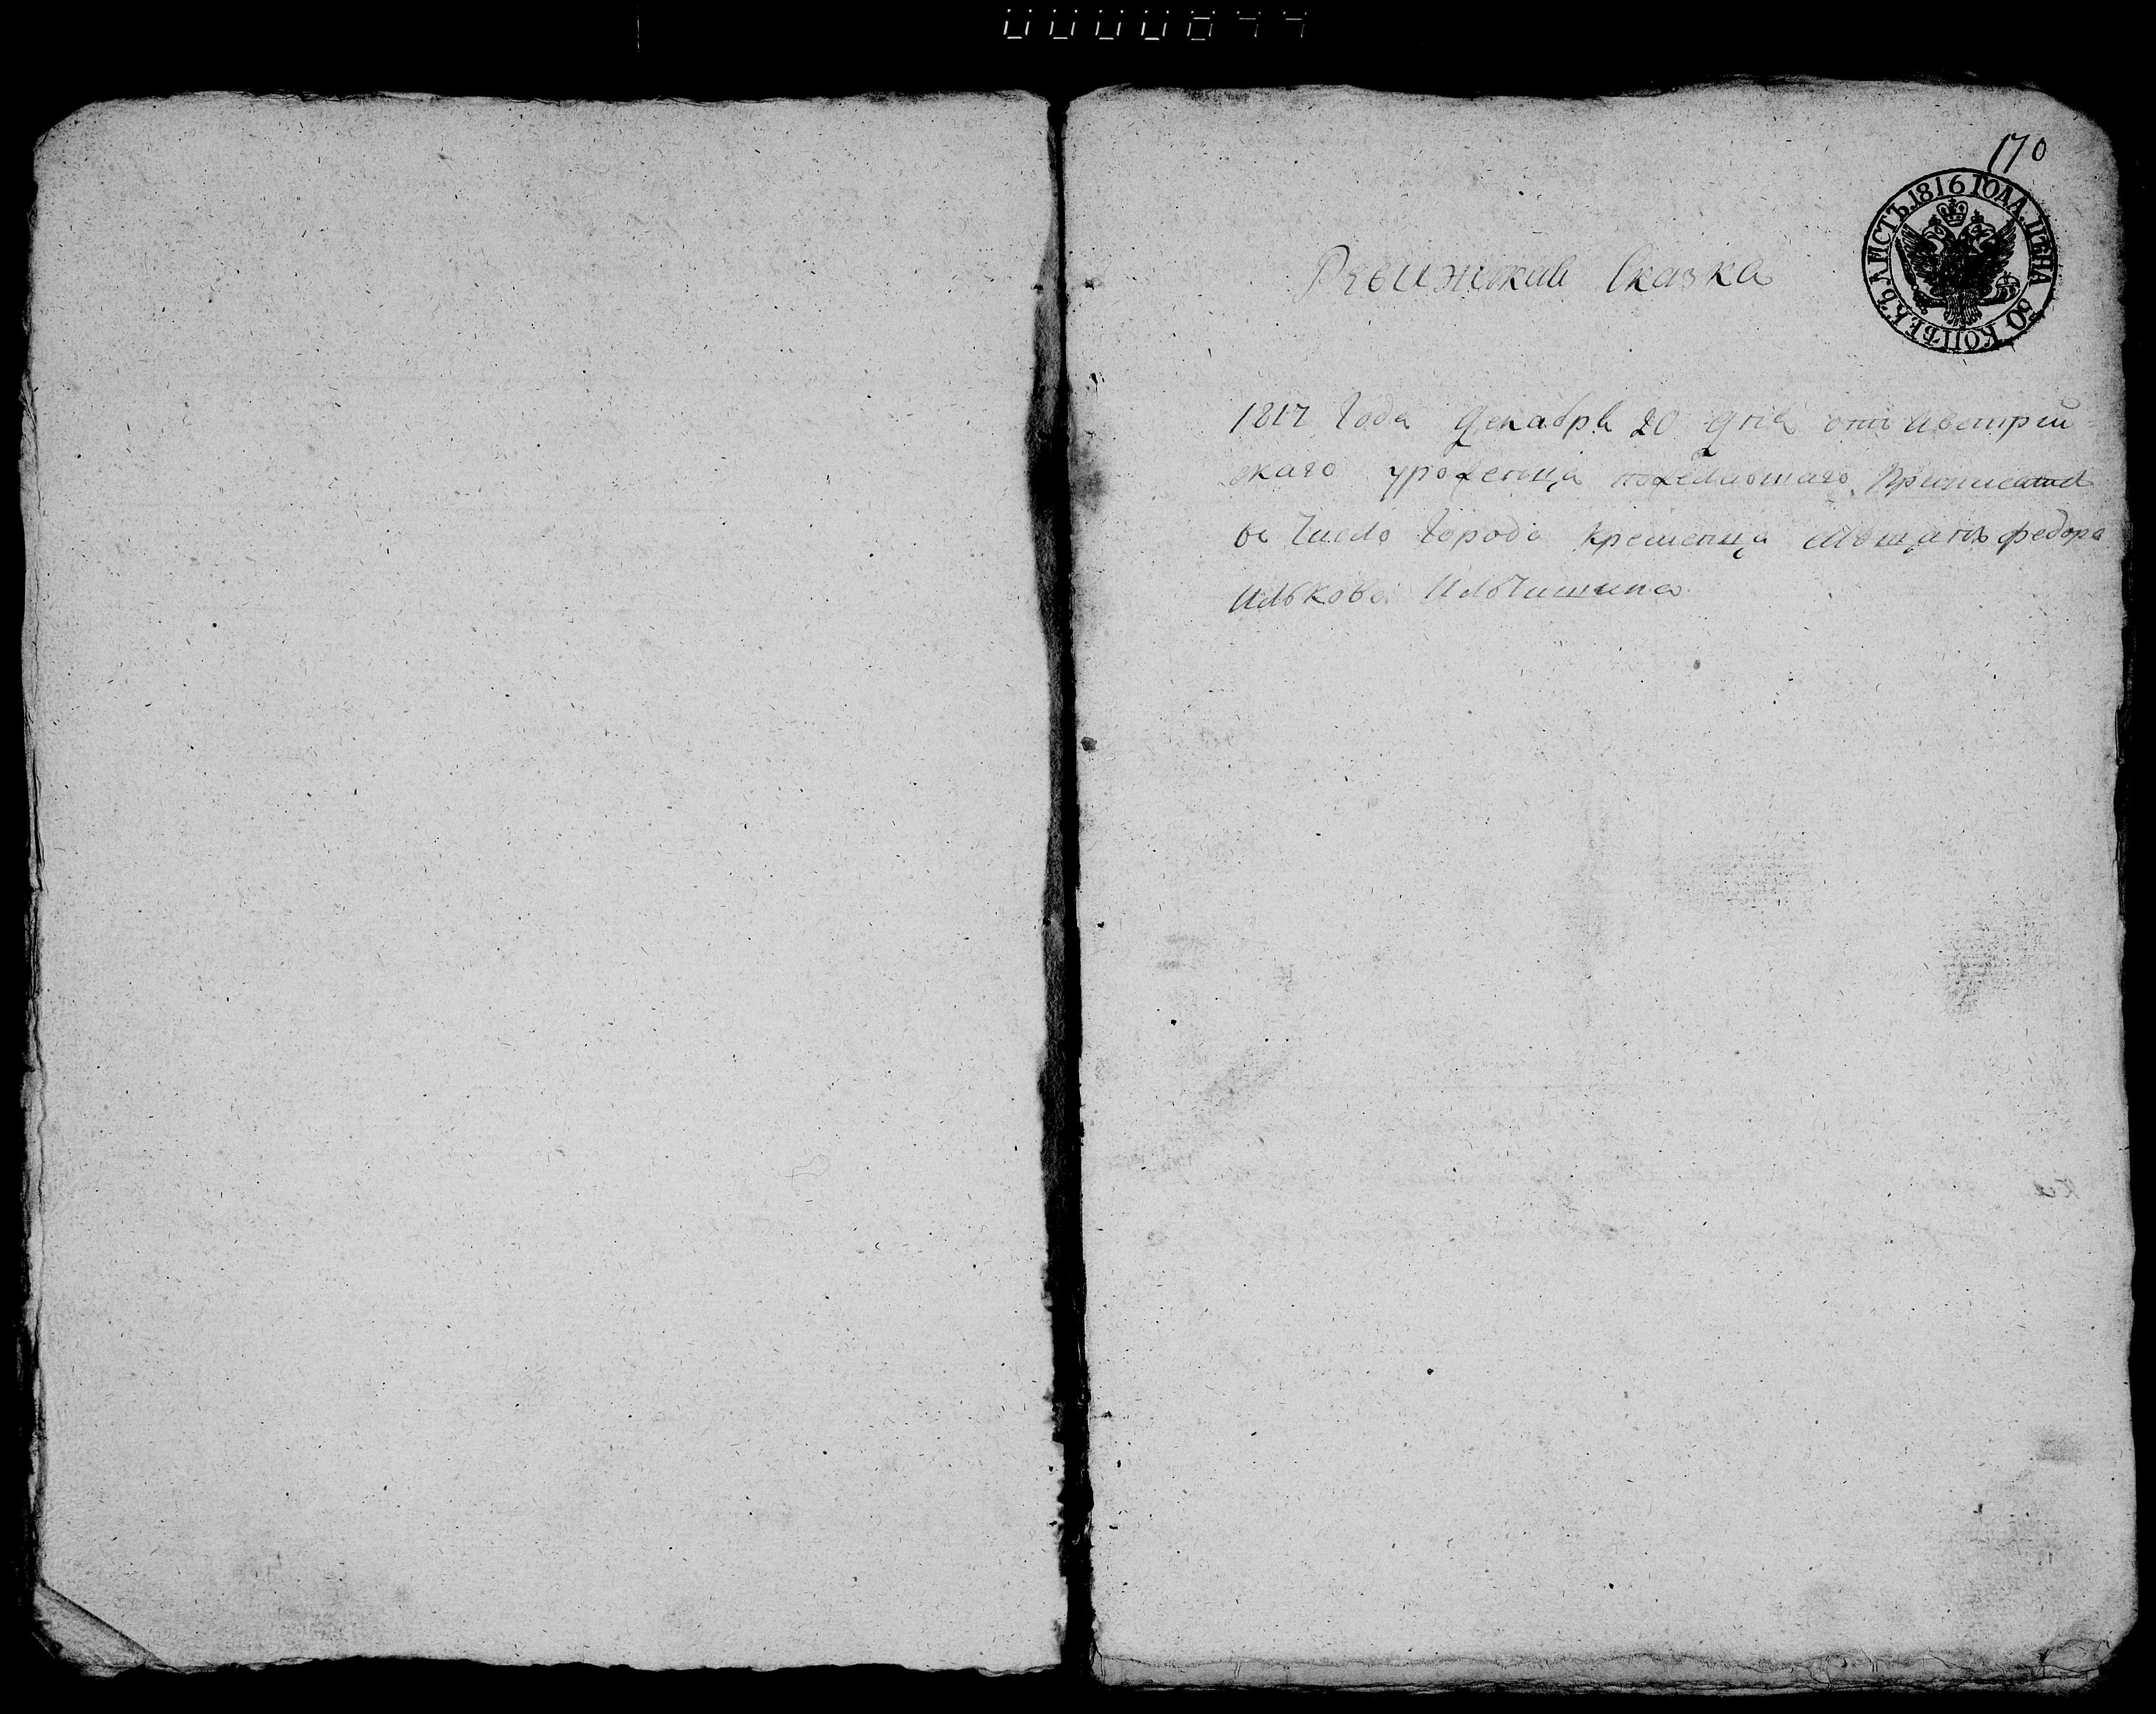 170
ЛИСТЪ 1816 ГОДА. ЦѢНА 50 КОПѢЕКЪ
Ревижская Сказка
1817 Года Декабря 20 дня отъ Австрий-
скаго уроженца пожелавшаго Приписатся
въ Число Города Кременца мѣщанъ федора
Илькова Ильчишина